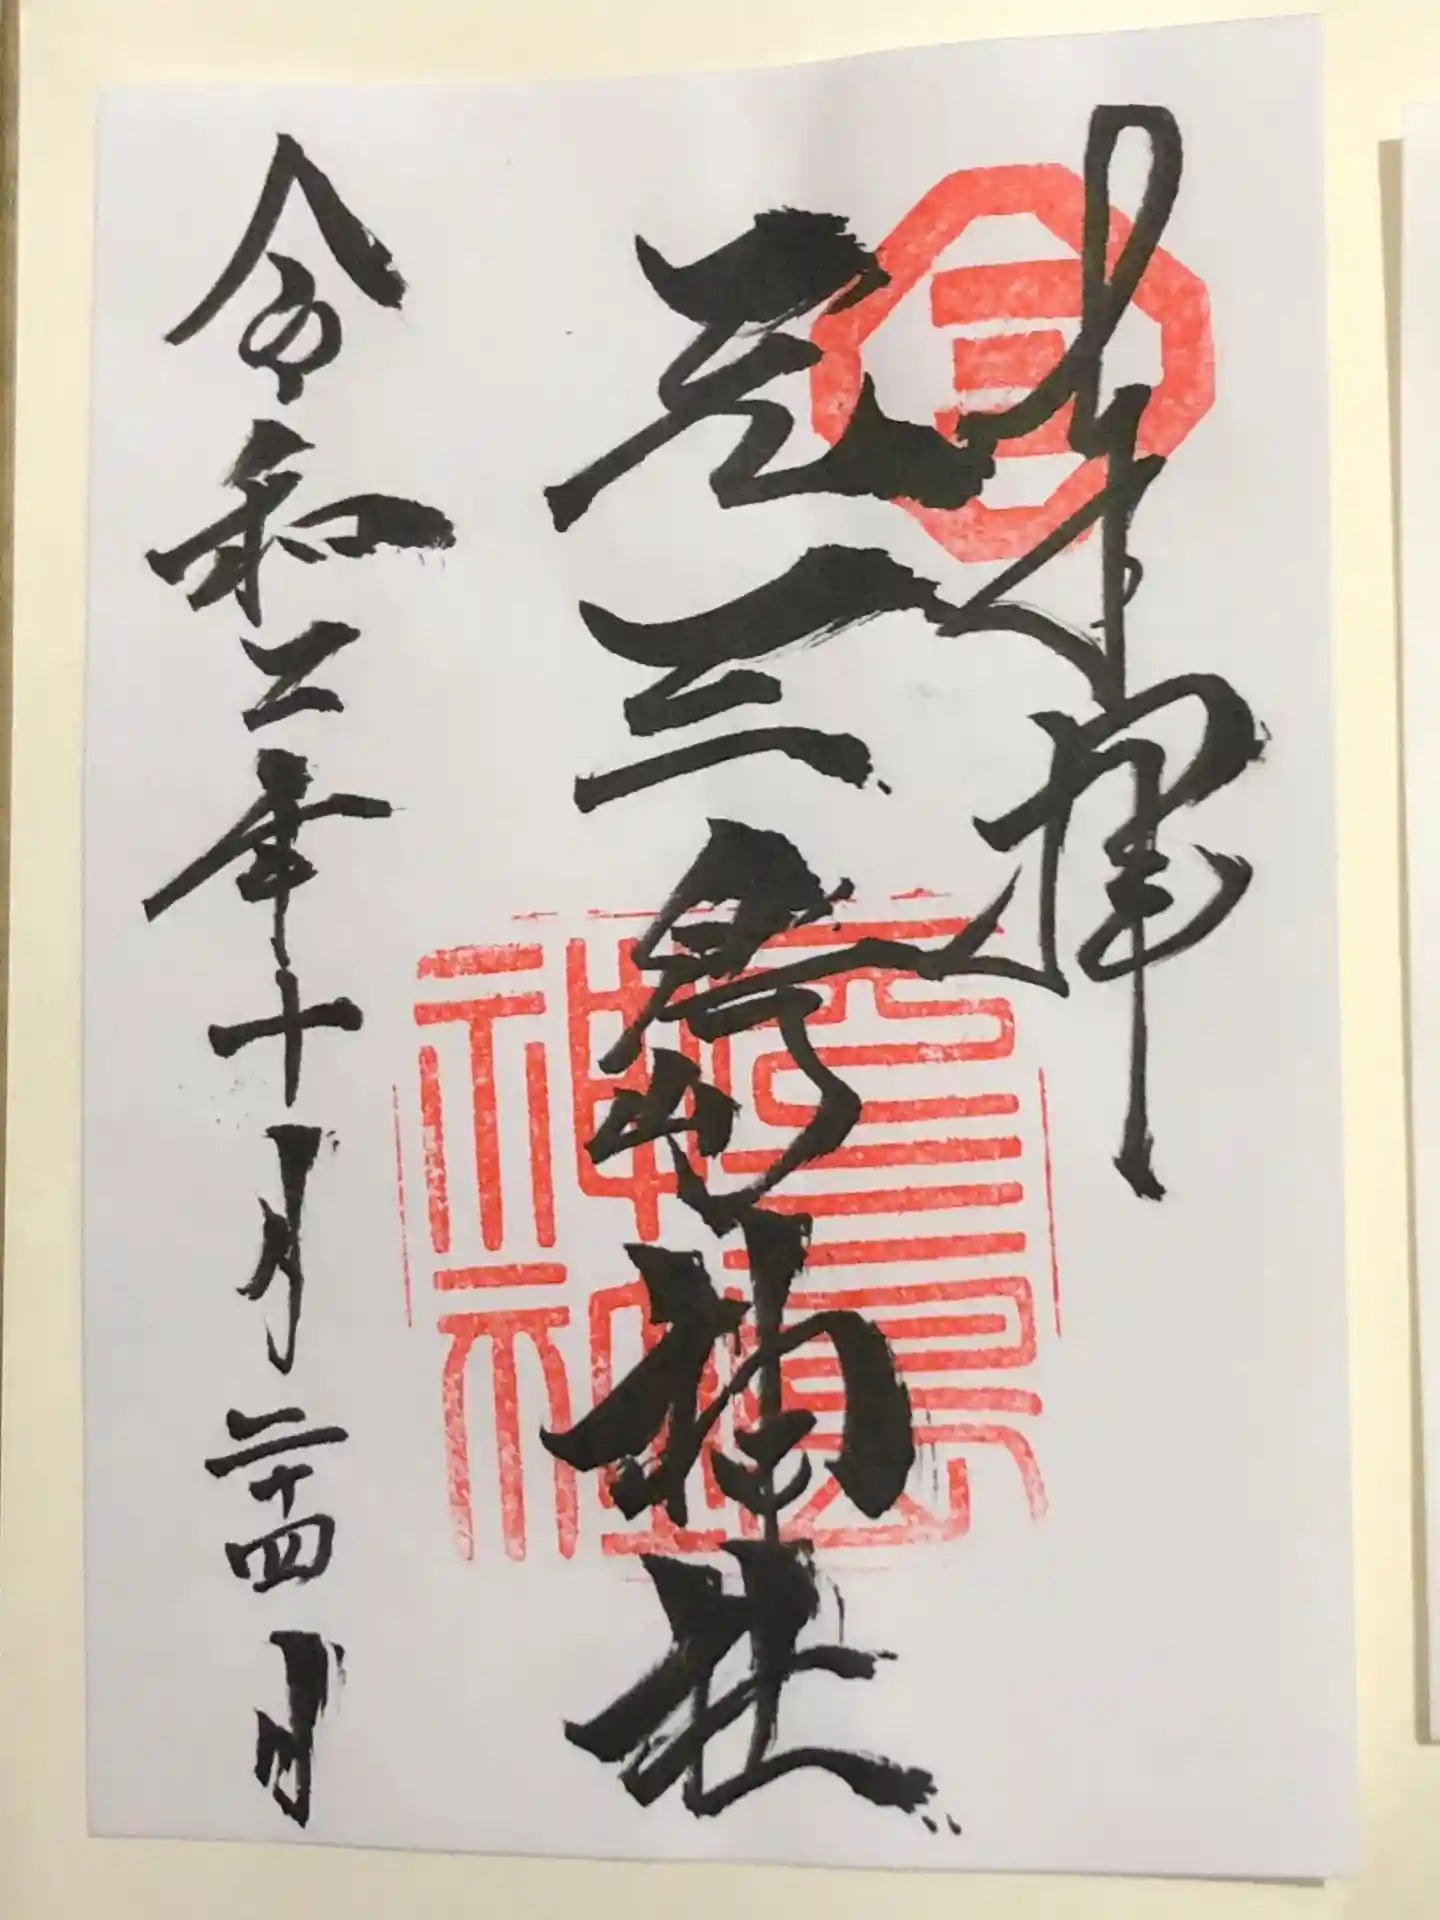 奉拝
元三島神社
令和二年十月二十四日
元三島
神社
三